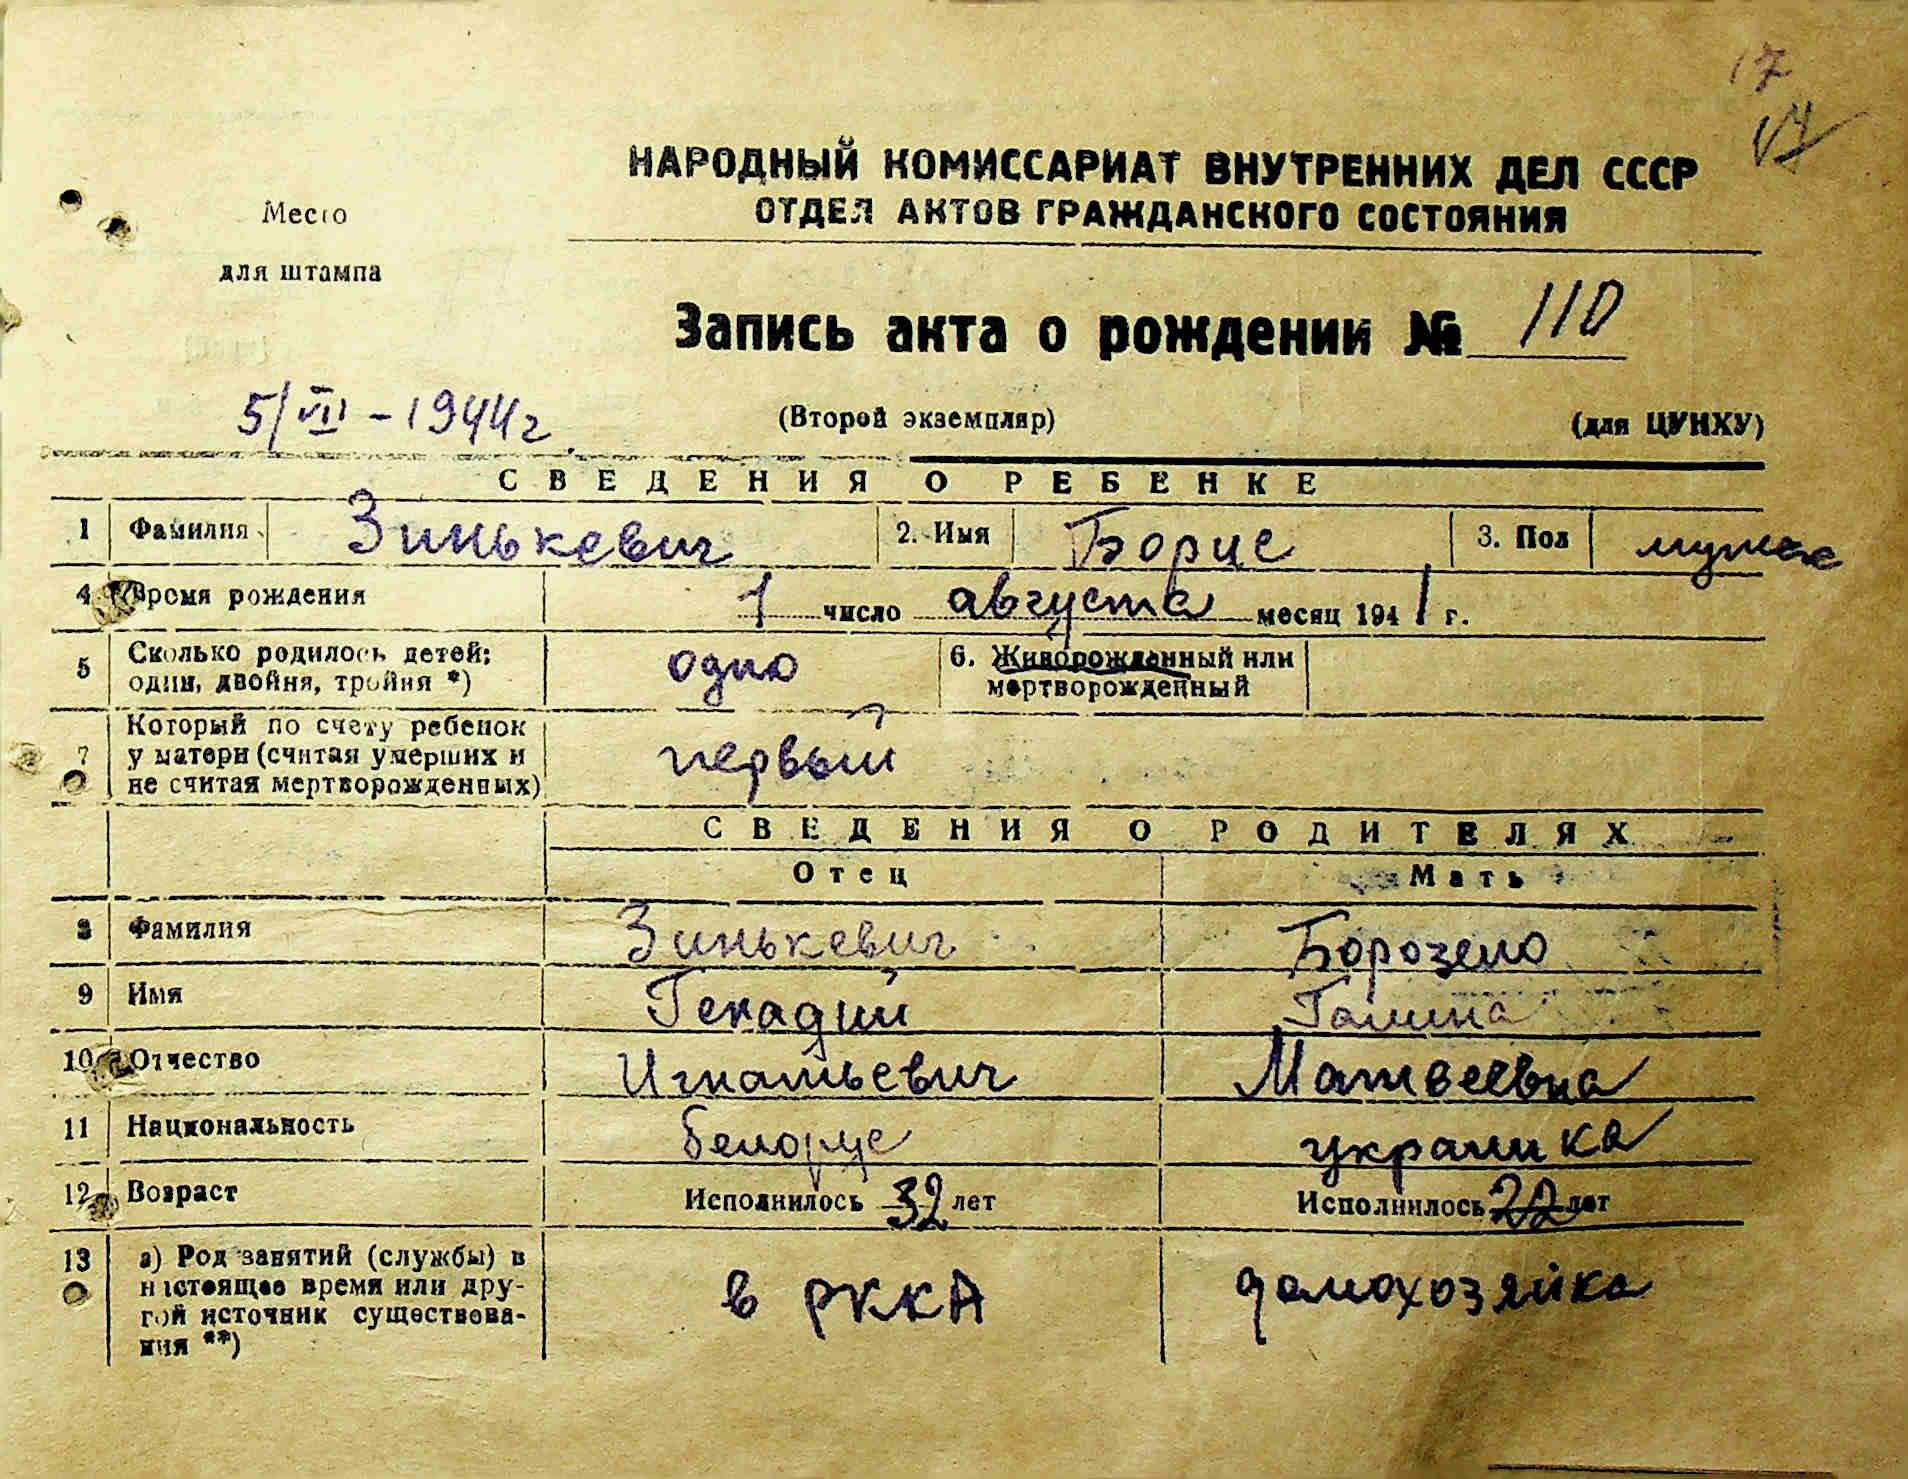 17
17
НАРОДНЫЙ КОМИССАРИАТ ВНУТРЕННИХ ДЕЛ СССР
ОТДЕЛ АКТОВ ГРАЖДАНСКОГО СОСТОЯНИЯ
Место
для штампа
Запись акта о рождении № 110
5/VII - 1944 г.
(Второй экземпляр)
(для ЦУНХУ)
СВЕДЕНИЯ О РЕБЕНКЕ
1 Фамилия Зинькевич 2. Имя Борис 3. Пол мужск
4 Время рождения 1 число августа месяц 1941 г.
5 Сколько родилось детей: один, двойня, тройня *) одно 6. Живорожденный или мертворожденный
7 Который по счету ребенок у матери (считая умерших и не считая мертворожденных) первый
СВЕДЕНИЯ О РОДИТЕЛЯХ
Отец Мать
8 Фамилия Зинькевич
9 Имя Генадий Галина
10 Отчество Игнатьевич Матвеевна
11 Национальность белорус украинка
12 Возраст Исполнилось 32 лет Исполнилось 22 лет
13 а) Род занятий (службы) в настоящее время или другой источник существования **) в РККА домохозяйка